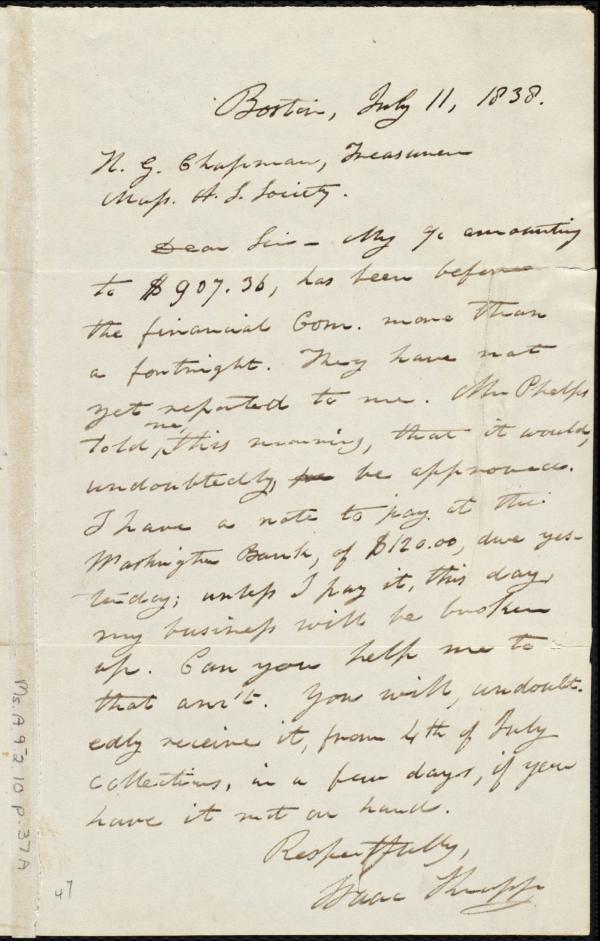 Boston, July 11, 1838.
H. G. Chapman, Treasurer
Mass. A. S. Society.
Dear Sir – My a/c amounting
to $907.36, has been before
the financial Com. more than
a fortnight. They have not
yet reported to me. Mr Phelps
told me, this morning, that it would,
undoubtedly, be approved.
I have a note to pay at the
Washington Bank, of $120.00, due yes-
terday; unless I pay it, this day,
my business will be broken
up. Can you help me to
that am't. You will, undoubt-
edly receive it, from 4th of July
collections, in a few days, if you
have it not on hand.
Respectfully,
Isaac Knapp
Ms.A.9.2.10 p.37A
47